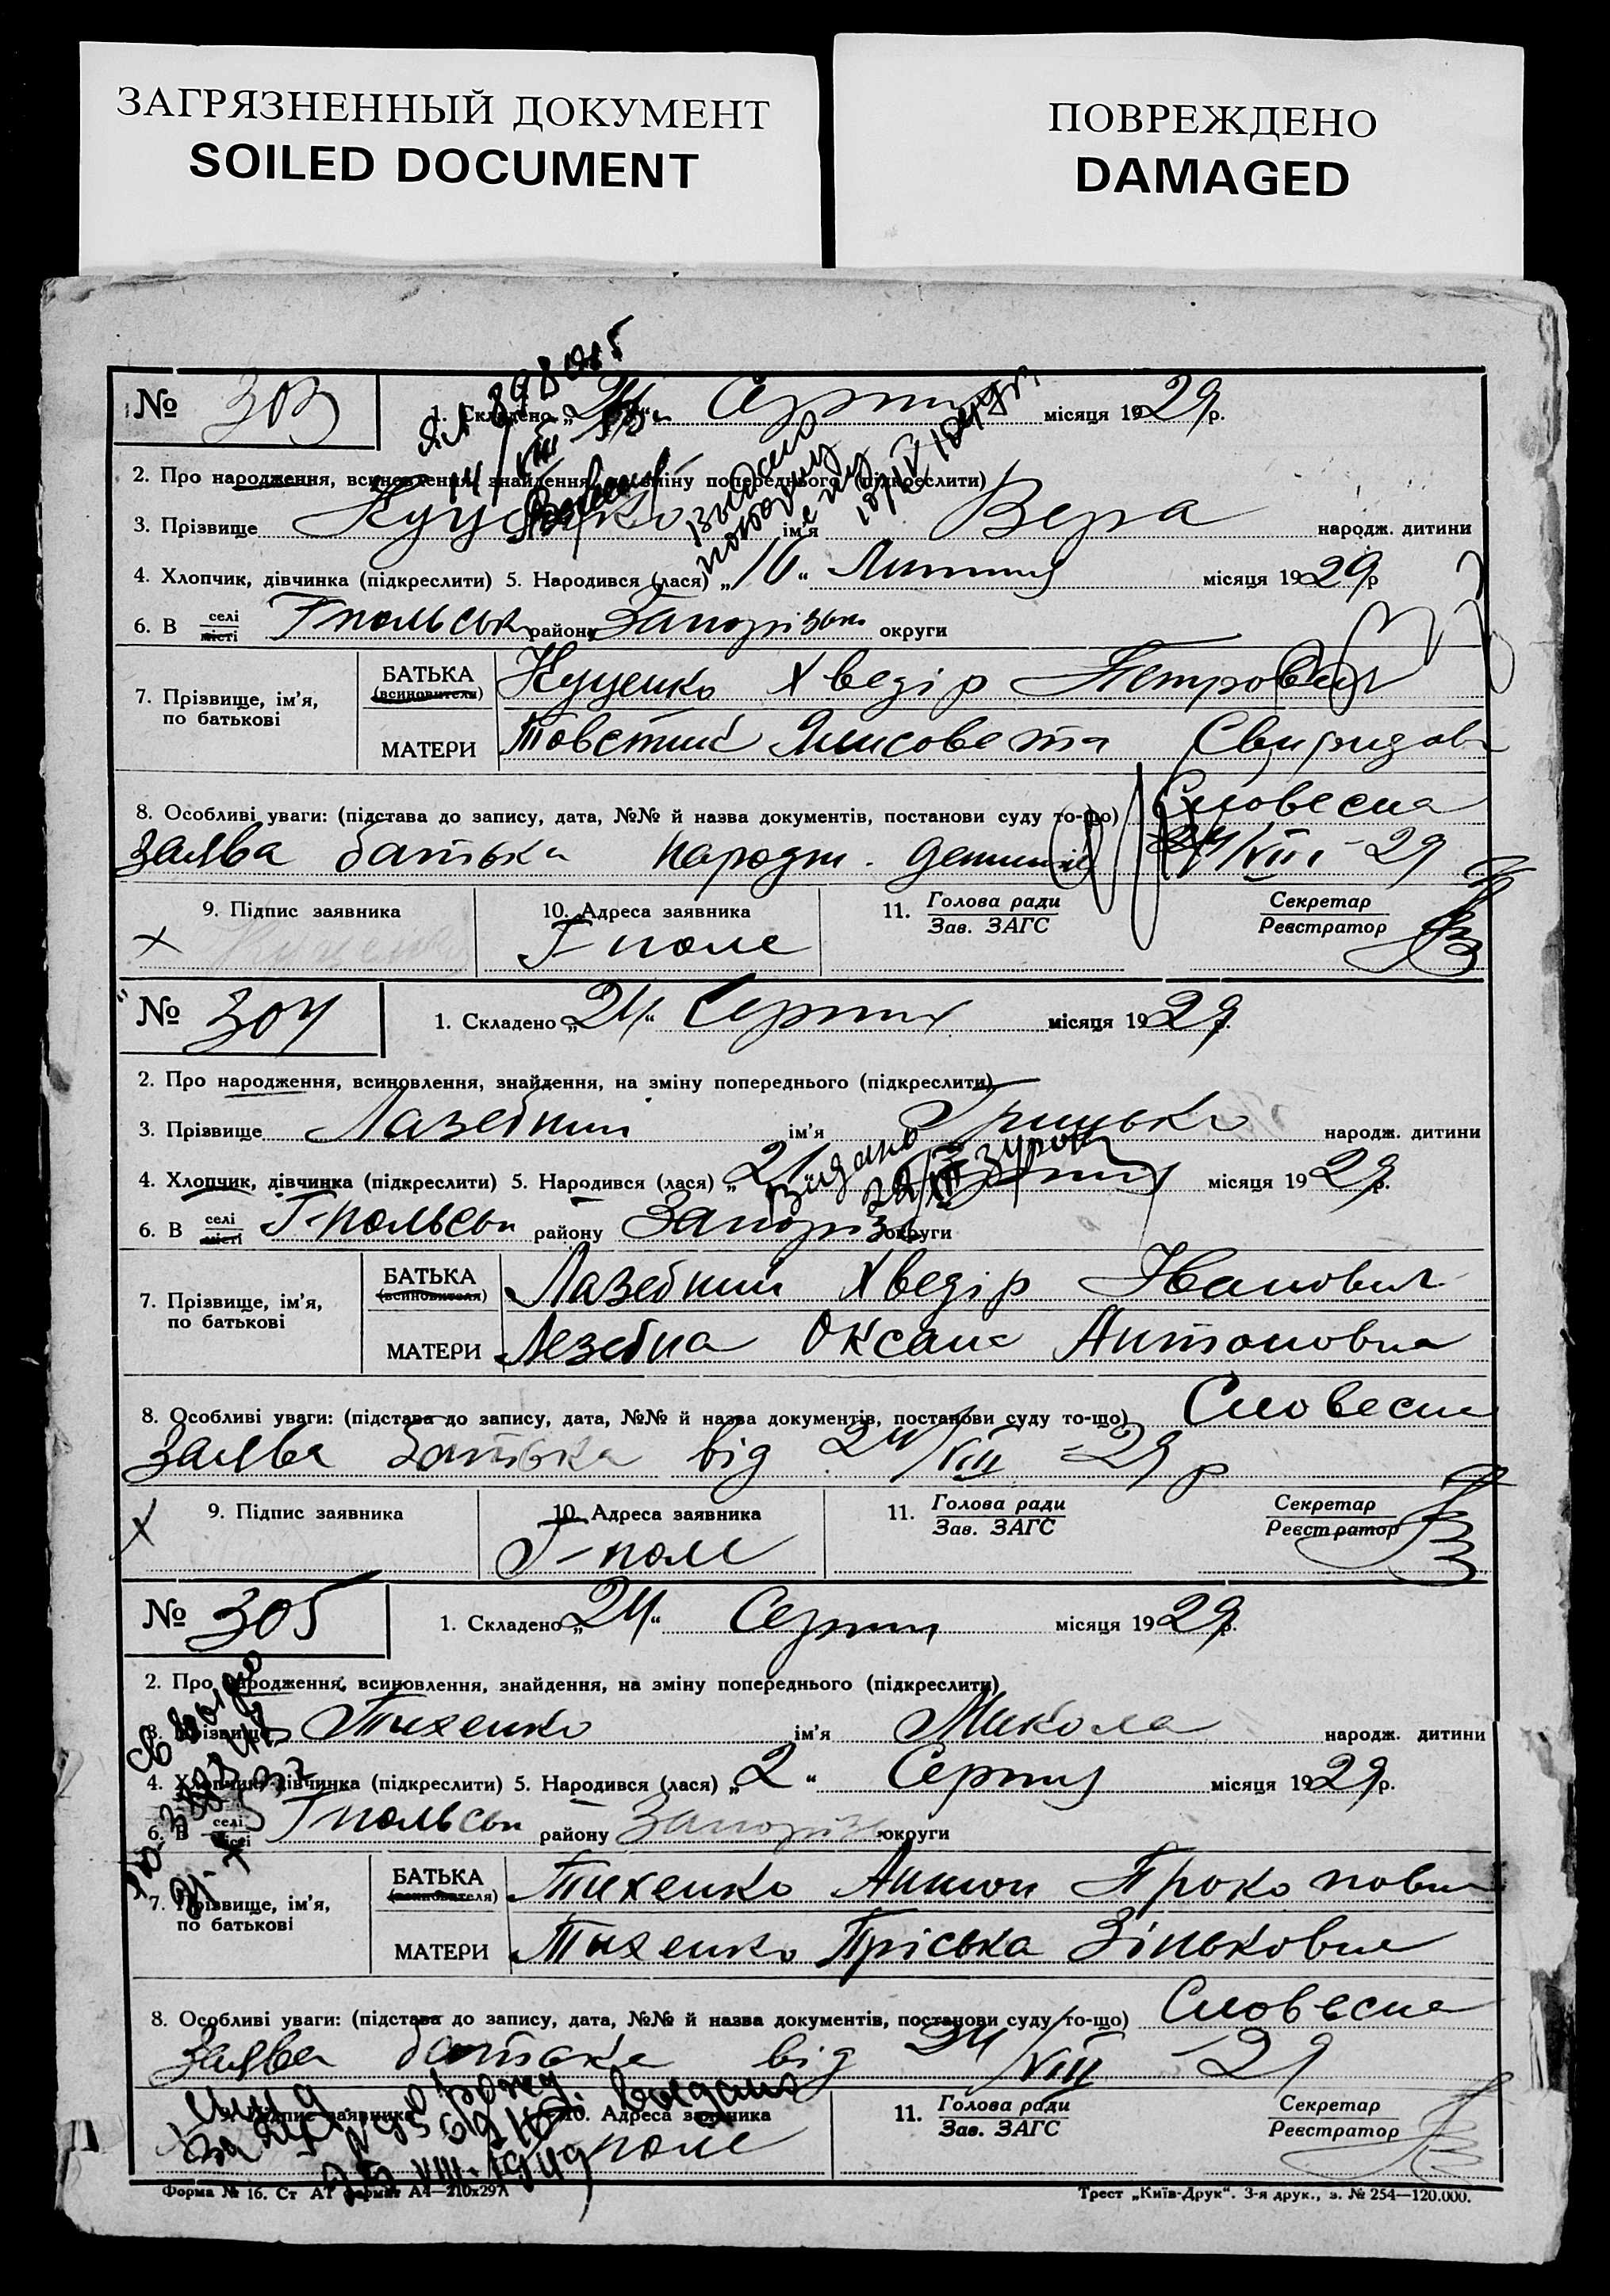 ЗАГРЯЗНЕННЫЙ ДОКУМЕНТ
SOILED DOCUMENT
ПОВРЕЖДЕНО
DAMAGED
№ 303
1. Складено „24“ Серпня місяця 1929р.
2. Про народження, всиновлення, знайдення, на зміну попереднього (підкреслити)
3. Прізвище Куценко ім’я Вера народж. дитини
4. Хлопчик, дівчинка (підкреслити) 5. Народився (лася) „16“ Липня місяця 1929р
6. В селі місті Гпольськ району Запорізьк округи
7. Прізвище, ім’я, по батькові
БАТЬКА (всиновителя) Куценко Хведір Петрович
МАТЕРИ Товстик Свиридов
8. Особливі уваги: (підстава до запису, дата, №№ й назва документів, постанови суду то-що) Словесна
Заява батька народж. 24/VIII-29
9. Підпис заявника
Куценко
10. Адреса заявника
Г-поле
11. Голова ради
Зав. ЗАГС
Секретар
Реєстратор
№ 304
1. Складено „24“ Серпня місяця 1929р.
2. Про народження, всиновлення, знайдення, на зміну попереднього (підкреслити)
3. Прізвище Лазебний ім’я Грицько народж. дитини
Видано
4. Хлопчик, дівчинка (підкреслити) 5. Народився (лася) „21“ місяця 1929р.
6. В селі місті Г-польськ району Запоріз округи
7. Прізвище, ім’я, по батькові
БАТЬКА (всиновителя) Лазебний Хведір Іванович
МАТЕРИ Лезебна Оксана Антоновна
8. Особливі уваги: (підстава до запису, дата, №№ й назва документів, постанови суду то-що) Словесна
Заява батька від 24/VIII-29 р
9. Підпис заявника
10. Адреса заявника
Г-поле
11. Голова ради
Зав. ЗАГС
Секретар
Реєстратор
№ 305
1. Складено „24“ Серпня місяця 1929р.
2. Про народження, всиновлення, знайдення, на зміну попереднього (підкреслити)
3. Прізвище Тихенко ім’я Микола народж. дитини
4. Хлопчик, дівчинка (підкреслити) 5. Народився (лася) „2“ Серпня місяця 1929р.
6. В селі місті Гпольськ району Запоріз округи
7. Прізвище, ім’я, по батькові
БАТЬКА (всиновителя) Тихенко Антон Прокопович
МАТЕРИ Тихенко Пріська Зіньковна
8. Особливі уваги: (підстава до запису, дата, №№ й назва документів, постанови суду то-що) Словесна
Заява батька від 24/VIII 29
9. Підпис заявника
10. Адреса заявника
поле
11. Голова ради
Зав. ЗАГС
Секретар
Реєстратор
Форма № 16. Ст А7 формат А4—210х297
Трест „Київ-Друк“. 3-я друк., з. № 254—120.000.